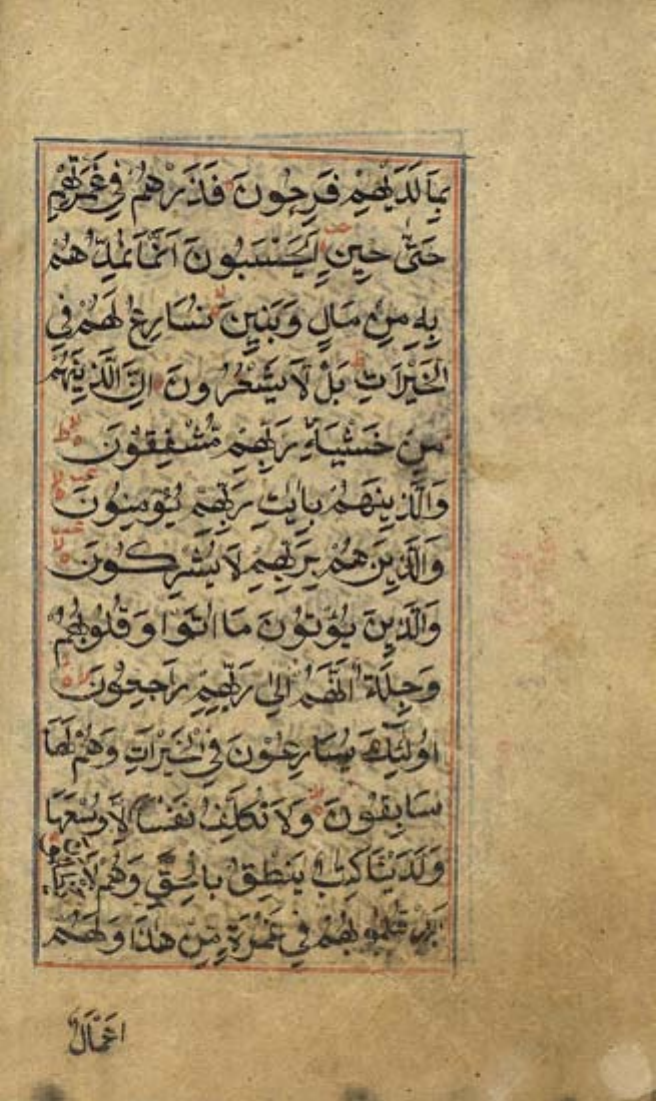 بِمَا لَدَيْهِمْ فَرِحُونَ فَذَرْهُمْ فِي غَمْرَتِهِمْ
حَتّٰى حِينٍ اَيَحْسَبُونَ اَنَّمَا نُمِدُّهُمْ
بِهِ مِنْ مَالٍ وَبَنِينَ نُسَارِعُ لَهُمْ فِي
الْخَيْرَاتِ بَلْ لَا يَشْعُرُونَ اِنَّ الَّذِينَهُمْ
مِنْ خَشْيَةِ رَبِّهِمْ مُشْفِقُونَ
وَالَّذِينَهُمْ بِاٰيٰتِ رَبِّهِمْ يُؤْمِنُونَ
وَالَّذِينَ هُمْ بِرَبِّهِمْ لَا يُشْرِكُونَ
وَالَّذِينَ يُؤْتُونَ مَا اٰتَوْا وَقُلُوبُهُمْ
وَجِلَةٌ اَنَّهُمْ اِلٰى رَبِّهِمْ رَاجِعُونَ
اُولٰئِكَ يُسَارِعُونَ فِي الْخَيْرَاتِ وَهُمْ لَهَا
سَابِقُونَ وَلَا نُكَلِّفُ نَفْسًا اِلَّا وُسْعَهَا
وَلَدَيْنَا كِتٰبٌ يَنْطِقُ بِالْحَقِّ وَهُمْ لَا
بَلْ قُلُوبُهُمْ فِي غَمْرَةٍ مِنْ هٰذَا وَلَهُمْ
اَعْمَالٌ